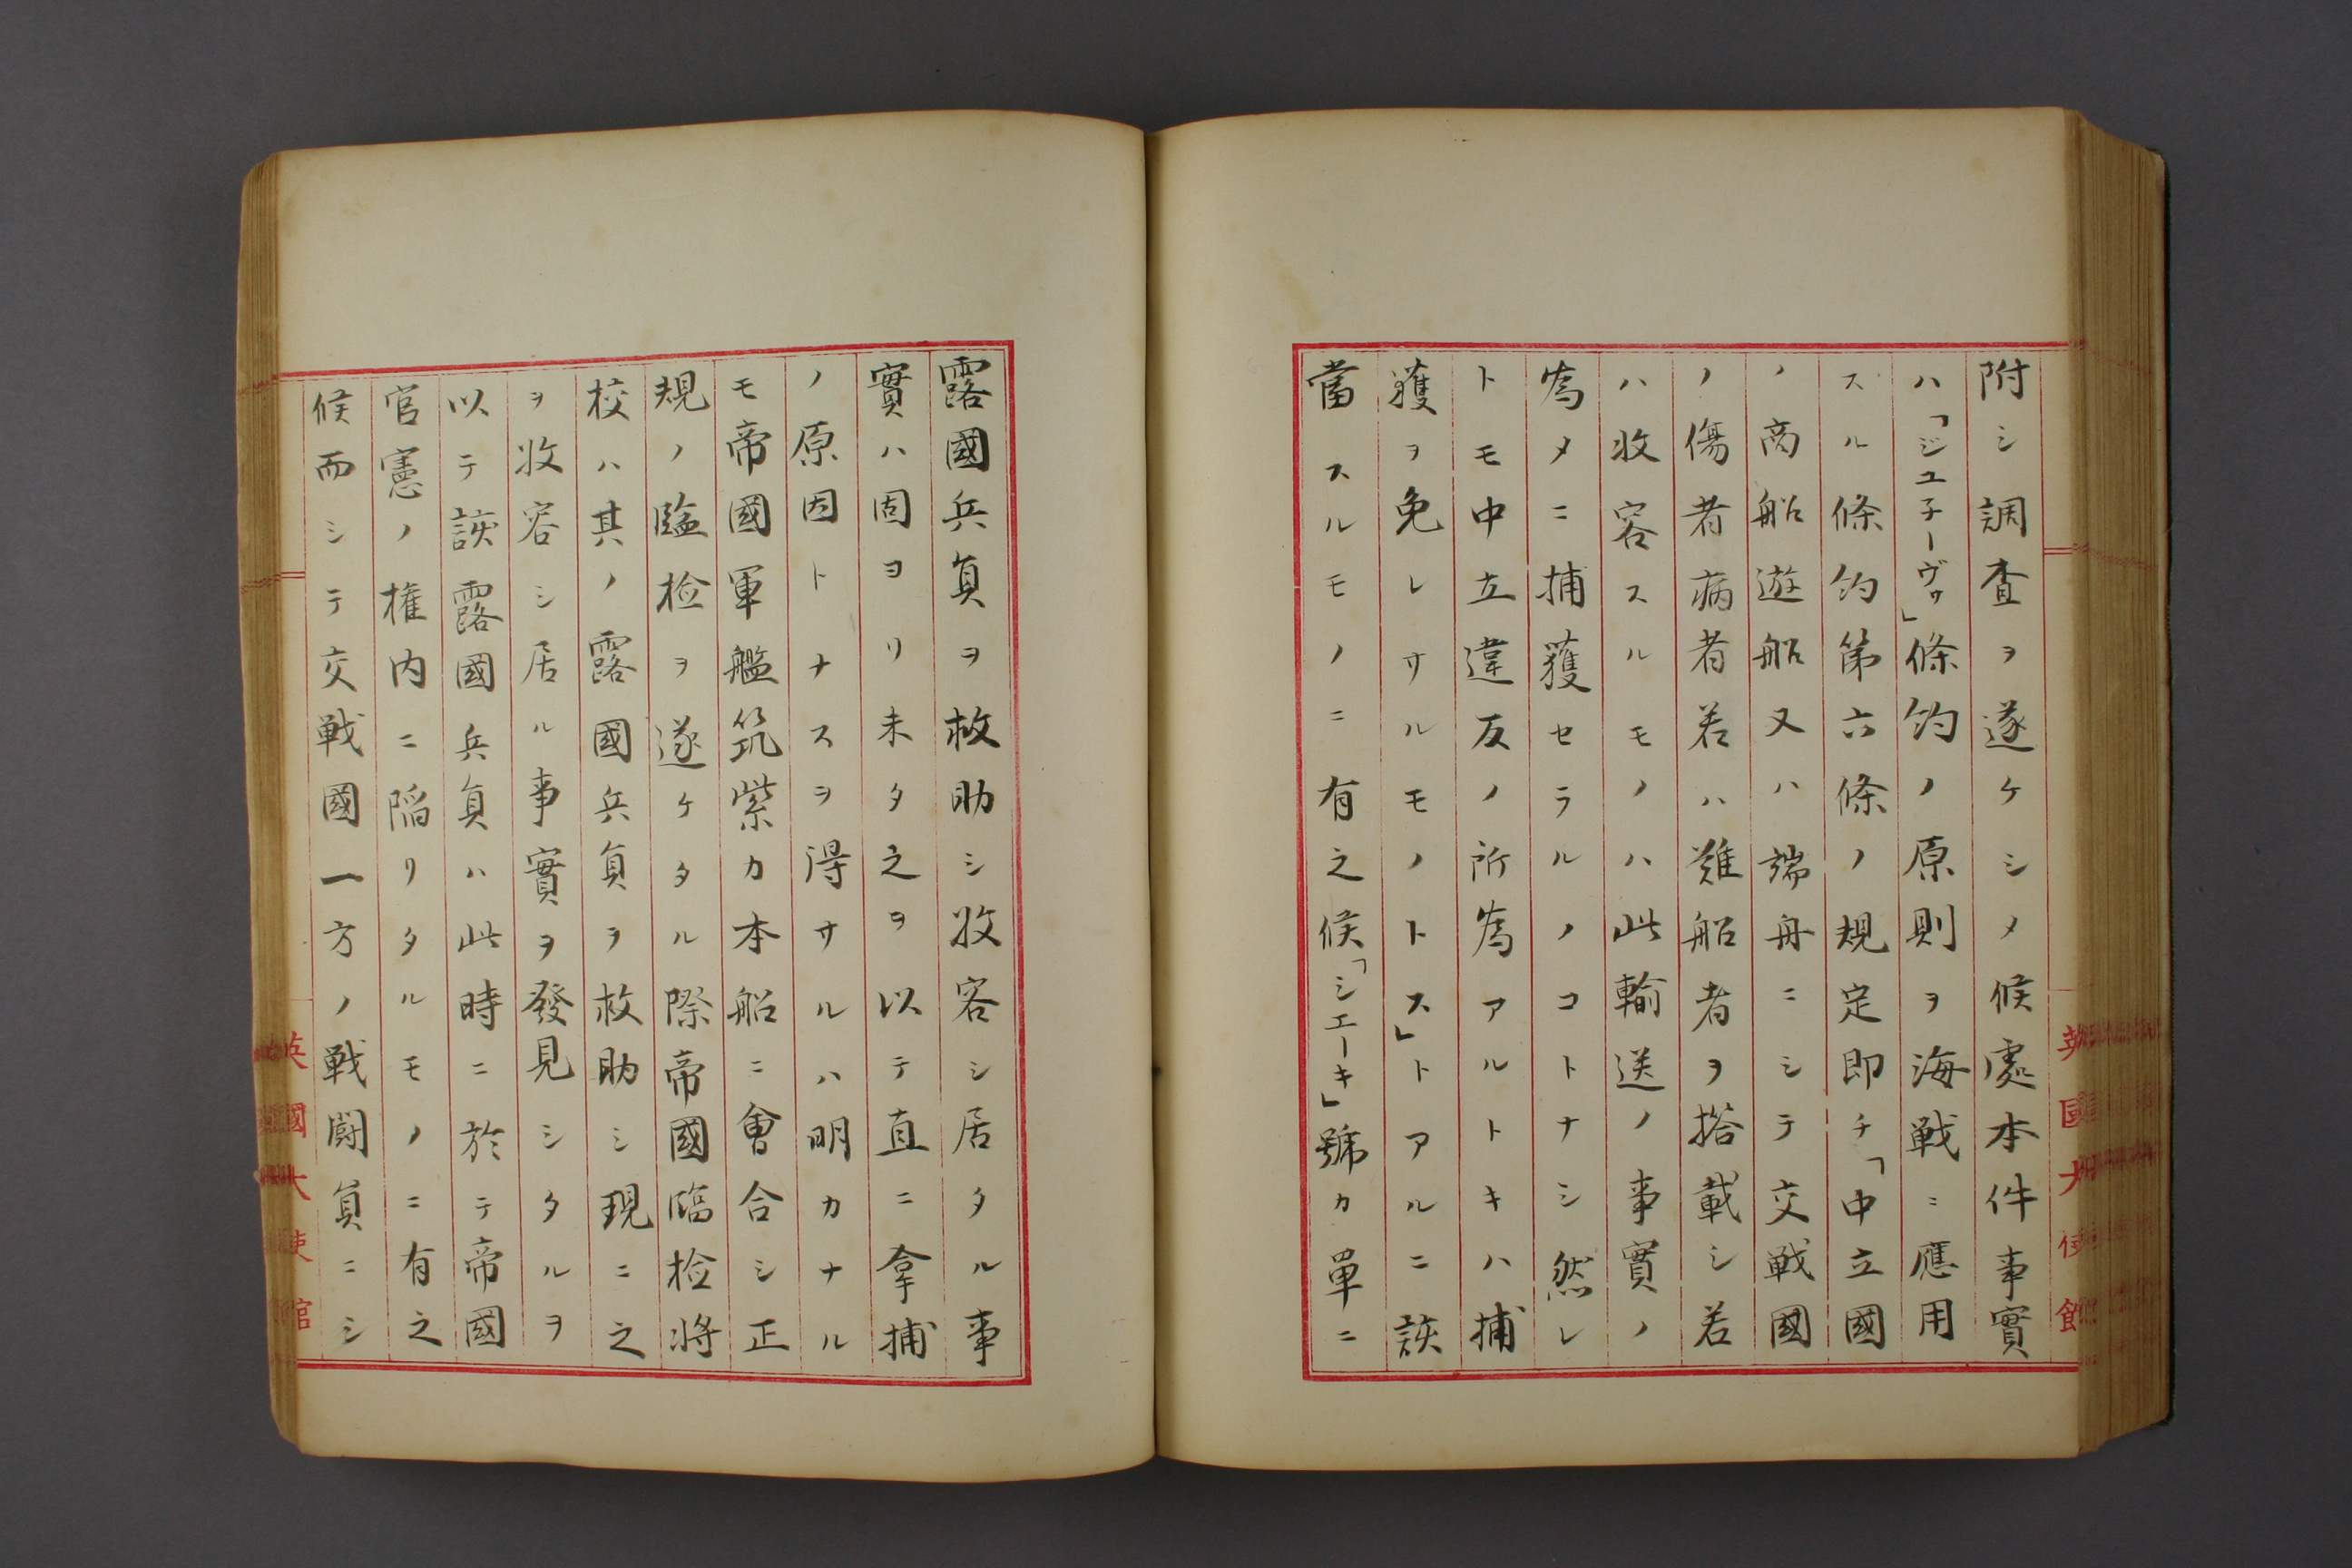 附シ調査ヲ遂ケシメ候處本件事實
ハ「ジユネーヴヮ」條約ノ原則ヲ海戰ニ應用
スル條約第六條ノ規定即チ「中立國
ノ商船遊船又ハ端舟ニシテ交戰國
ノ傷者病者若ハ難船者ヲ搭載シ若
ハ收容スルモノハ此輸送ノ事實ノ
爲メニ捕獲セラルノコトナシ然レ
トモ中立違反ノ所爲アルトキハ捕
獲ヲ免レサルモノトス」トアルニ該
當スルモノニ有之候「シエーキ」號カ單ニ
露國兵員ヲ救助シ收容シ居タル事
實ハ固ヨリ未タ之ヲ以テ直ニ拿捕
ノ原因トナスヲ得サルハ明カナル
モ帝國軍艦筑紫カ本船ニ會合シ正
規ノ臨檢ヲ遂ケタル際帝國臨檢將
校ハ其ノ露國兵員ヲ救助シ現ニ之
ヲ收容シ居ル事實ヲ發見シタルヲ
以テ該露國兵員ハ此時ニ於テ帝國
官憲ノ權内ニ陷リタルモノニ有之
候而シテ交戰國一方ノ戰鬪員ニシ
英國大使館
英國大使館